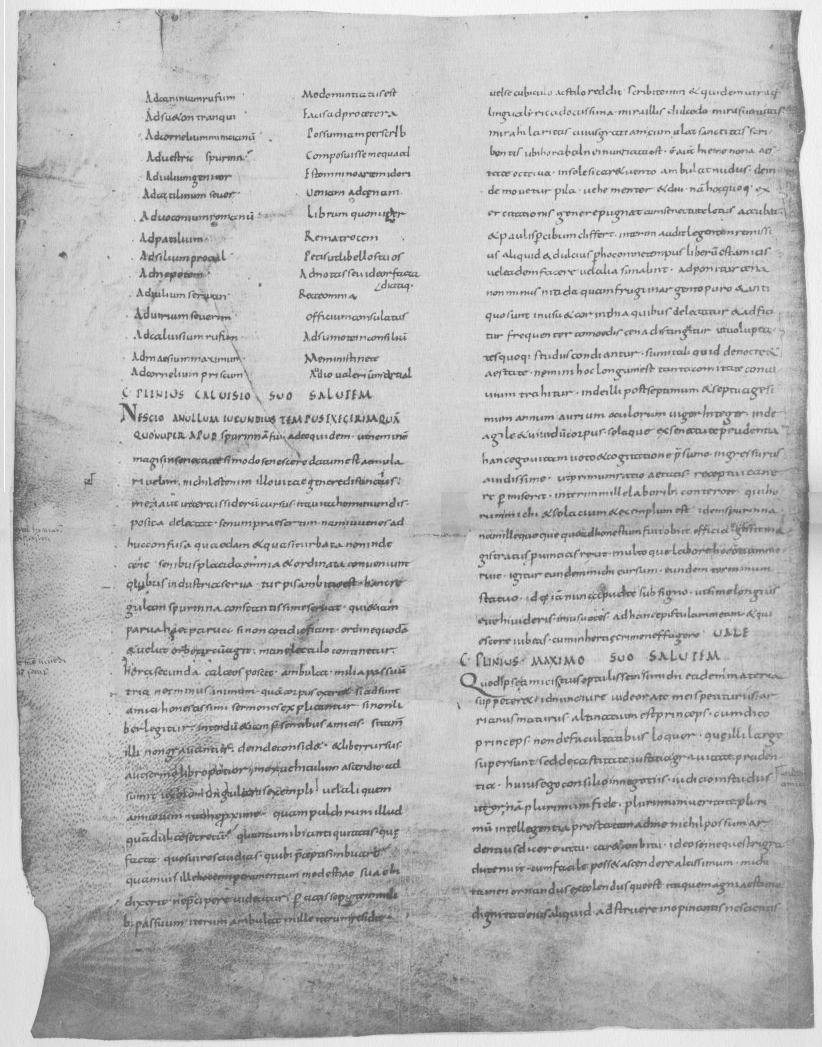 Adcaninium rufum Modonuntiatusest
Adsuetontranqui Facisadprocetera
Adcorneliumminicianū Possumiamperscrib
Aduestric spurinnā Composuissemequaed
Adiuliumgenitor Estomninoartemidori
Adcatilinum seuer Ueniam adcenam
Aduoconiumromanū Librum quonuper
Adpatilium Rematrocem
Adsiliumprocul Petisutlibellostuos
Adnepotem Adnotasseuideorfacta
dictaq·
Adiulium seruian Recteomnia
Aduirium seuerum Officiumconsulatus
Adcaluisium rufum Adsumoteinconsiliū
Admaesiummaximum Meministinete
Adcornelium priscum Audio ualeriūmartial
C· PLINIUS CALUISIO SUO SALUTEM
NESCIO ANULLUM IUCUNDIUS TEMPUS EXEGERIM QUĀ
QUONUPER APUD spurinnā fui adeoquidem· utneminē
magisinsenectutesimodosenescere datumest aemula
riuelim· nichilestenim illouitae generedistinctius·
meautut certussiderū cursus itauitahominumdis
posita delectat· senumpraesertim· namiuuenes ad
hucconfusa quaedam &quasiturbata nonindec
senibusplacidaomnia &ordinata conueniunt
quibus industriasera· turpisambitioest· hancre
gulam spurinna constantissimeseruat· quinetiam
paruahaec parua· sinon cotidiefiant· ordinequodā
&uelut orbe circumagit· mane lectulo continetur·
horasecunda calceos poscit· ambulat· miliapassuū
tria nec minus animum· quācorpus exercet siadsunt
amici honestissimi sermones explicantur· sinonli
berlegitur· interdū &iam psentibus amicis· sitamen
illi nongrauantur· deindeconsidet· &liberrursus
autsermolibropotior· moxuehiculum ascendit· ad
sumit uxorem singularis exempli uelaliquem
amicorum· utmeproxime· quampulchrumillud
quādulcesecretū· quantumibi antiquitatis· que
facta· quosuirosaudias· quib· pceptisimbuare
quamuis illehoctemperamentum modestiae suae in
dixerit· nepcipere uideatur· pactis septemmilli
b· passuum· iterum ambulat mille iterumresidit·
uelsecubiculo acstiloreddit· scribitenim &quidemutraq·
lingualyricadoctissima· miraillis dulcedo mirasuauitas
mirahilaritas cuiusgratiamcumulat sanctitas scri
bentis ubihorabalneinuntiataest· ēautē hieme nona aes
tate octaua· insolesicaretuento ambulatnudus· dein
de mouetur pila· uehementer &diu· nā hocquoq· ex
ercitationis generepugnat cumsenectutelotus accubat
&paulispercibum differt· interim auditlegentemremissi
us aliquid &dulcius perhocomnetempus liberūestamicis
ueleademfacere uelaliasimalint· adponiturcena
nonminus nitida quamfrugi inargentopuro &anti
quosuntinusu &corinthia quibus delectatur &adfici
tur frequenter comoedis cenadistinguitur utuolupta
tesquoq· studiis condiantur· sumitali quid denocte&
aestate· nemini hoc longumest tantacomitate conui
uium trahitur· indeilli postseptimum &septuagesi
mum annum aurium oculorum uigorinteger· inde
agile &uiuidūcorpus· solaque exsenectuteprudentia
hancegouitam uoto&cogitatione psumo· ingressurus
auidissime· utprimumratio aetatis· receptuicane
re pmiserit· interimmillelaborib· conteror quiho
rummihi &solacium &exemplum est idemspurinna
namillequoque quoadhonestumfuitobiit officia gessitma
gistratus prouincias rexit· multoquelaborehocotiummeru
it· igitur eundemmihi cursum· eundem terminum
statuo· idq· iā nunc apud te subsigno· utsimelongius
euehiuideris inius uoces adhancepistulammeam· &qui
escere iubeas· cuminhertiaecrimeneffugero UALE
C· PLINIUS· MAXIMO SUO SALUTEM
Quodipseamicistuisoptulissem simihi eademmateria
suppeteret· idnunciure uideorate meispetiturus· ar
rianusmaturus altinatium estprinceps· cumdico
princeps· nondefacultatibus loquor· queillilarge
supersunt· seddecastitate iustitia grauitate pruden
tia· huiusegoconsilioinnegotiis· iudicioinstudiis
utor· nā plurimum fide· plurimumueritateplurι
mū intellegentia prestatamatme nichilpossum ar
dentiusdicere uttu· caret ambitu· ideoseinequestrigra
dutenuit· cumfacile posset ascendere altissimum· mihi
tamen ornandus excolendusqueest itaquemagniaestimo
dignitatieius aliquid adstruere inopinantis nescientis